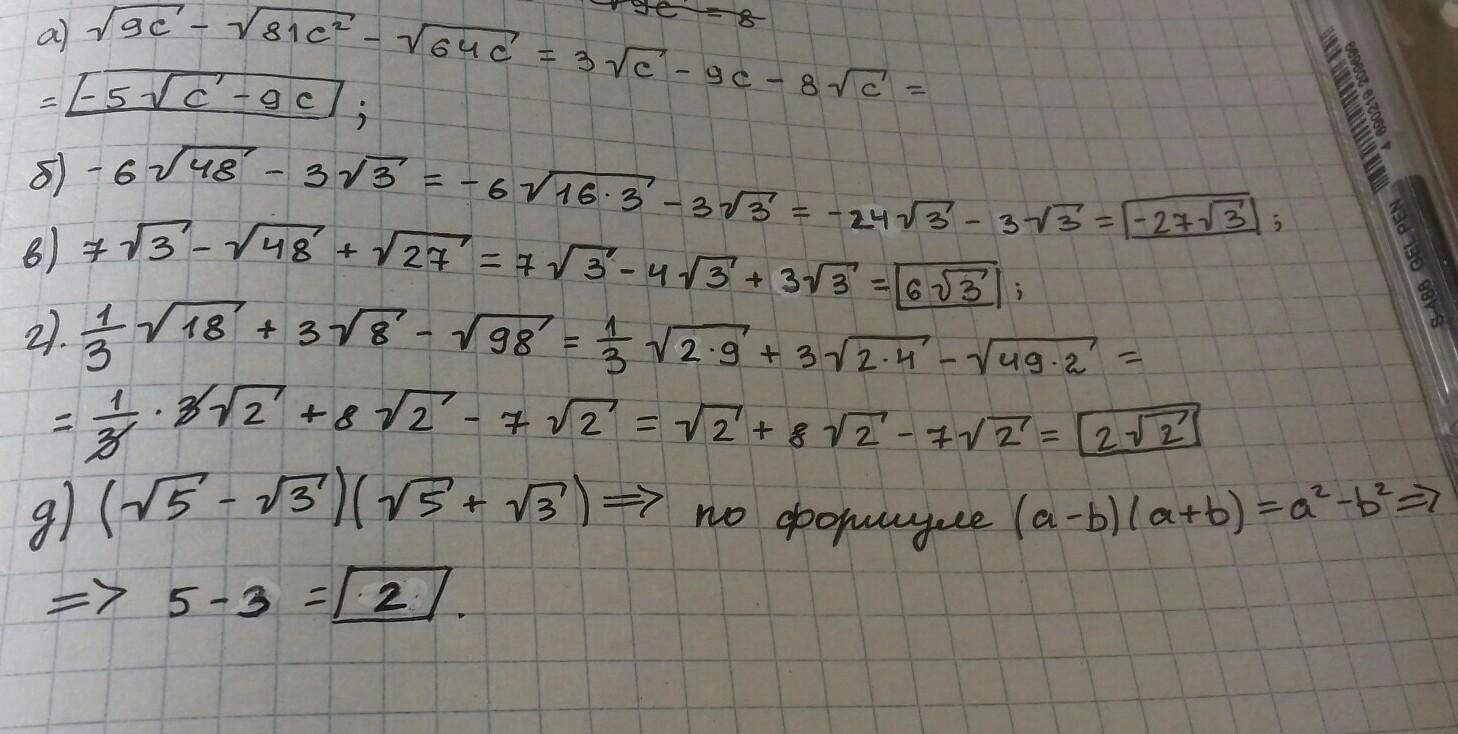 √9c = 8
а) √9c - √81c² - √64c = 3√c - 9c - 8√c =
= -5√c - 9c ;
б) -6√48 - 3√3 = -6√16·3 - 3√3 = -24√3 - 3√3 = -27√3 ;
в) 7√3 - √48 + √27 = 7√3 - 4√3 + 3√3 = 6√3 ;
г). 1/3 √18 + 3√8 - √98 = 1/3 √2·9 + 3√2·4 - √49·2 =
= 1/3 · 3√2 + 8√2 - 7√2 = √2 + 8√2 - 7√2 = 2√2
д) (√5 - √3)(√5 + √3) => по формуле (a-b)(a+b) = a² - b² =>
=> 5 - 3 = 2 .
GEL PEN